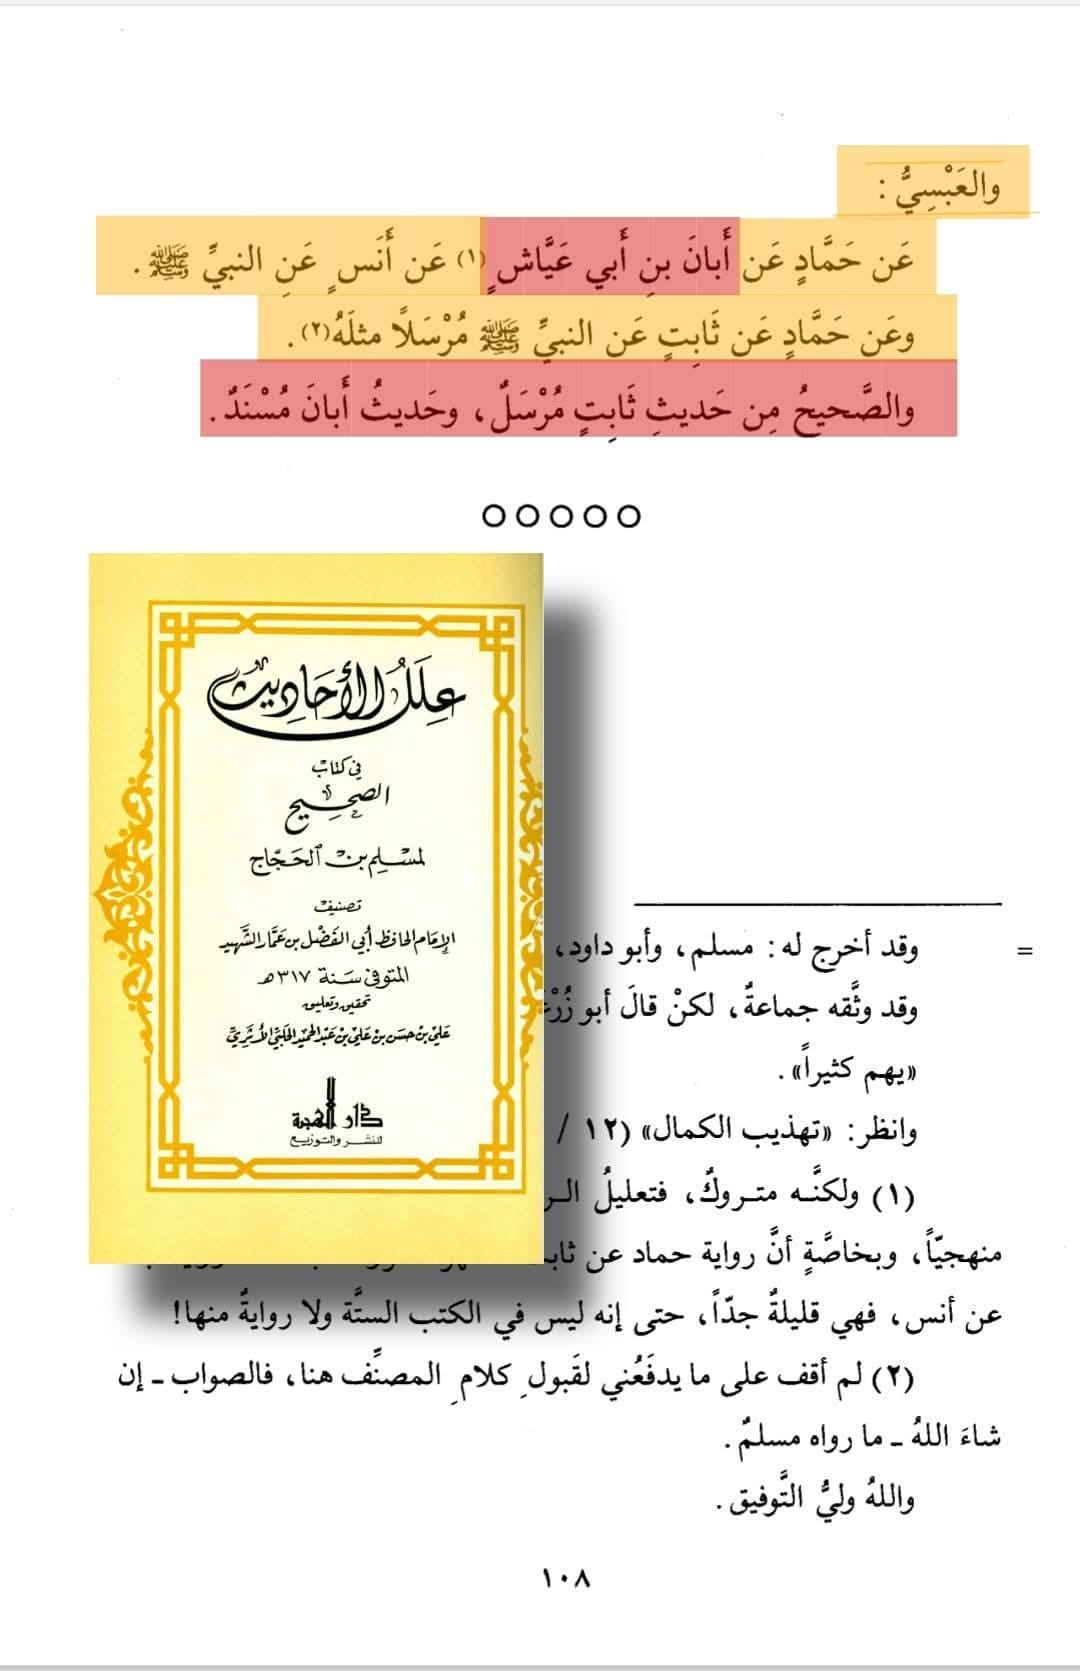 والعَبْسِيُّ :
عَن حَمَّادٍ عَن أَبانَ بنِ أَبي عَيَّاشٍ (١) عَن أَنَسٍ عَنِ النبيِّ ﷺ .
وعَن حَمَّادٍ عَن ثَابِتٍ عَن النبيِّ ﷺ مُرْسَلًا مثلَهُ (٢) .
والصَّحيحُ مِن حَديثِ ثَابِتٍ مُرْسَلٌ، وحَديثُ أَبانَ مُسْنَدٌ .
عِلَلُ الأَحَادِيثِ
في كتاب
الصحيح
لمسلم بن الحجّاج
تصنيف
الإمام الحافظ أبي الفضل بن عمّار الشهيد
المتوفى سنة ٣١٧ هـ
تحقيق وتعليق
علي بن حسن بن علي بن عبد الحميد الحلبي الأثري
دار الهجرة
للنشر والتوزيع
= وقد أخرج له: مسلم، وأبو داود،
وقد وثَّقه جماعةٌ، لكنْ قالَ أبو
«يهم كثيراً» .
وانظر: «تهذيب الكمال» (١٢ /
(١) ولكنَّه متروكٌ، فتعليلُ
منهجيّاً، وبخاصَّةٍ أنَّ رواية حماد عن
عن أنس، فهي قليلةٌ جدّاً، حتى إنه ليس في الكتب الستَّة ولا روايةٌ منها!
(٢) لم أقف على ما يدفَعُني لقَبولِ كلامِ المصنِّف هنا، فالصواب ـ إن
شاءَ اللهُ ـ ما رواه مسلمٌ .
واللهُ وليُّ التَّوفيق .
١٠٨